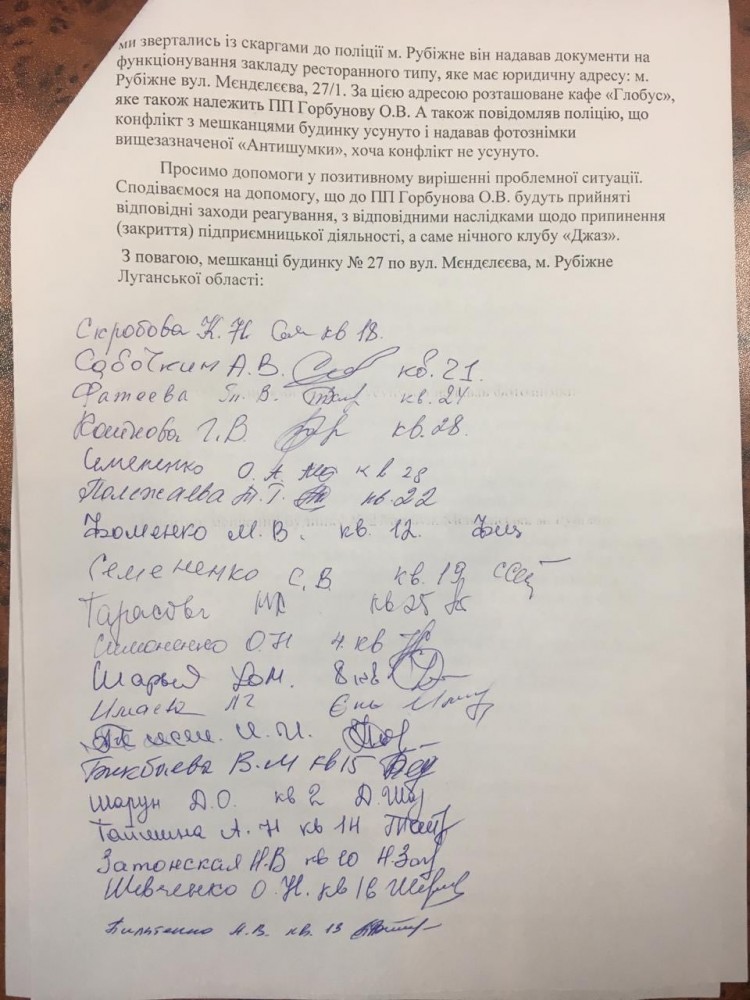 ми звертались із скаргами до поліції м. Рубіжне він надавав документи на
функціонування закладу ресторанного типу, яке має юридичну адресу: м.
Рубіжне вул. Мєндєлєєва, 27/1. За цією адресою розташоване кафе «Глобус»,
яке також належить ПП Горбунову О.В. А також повідомляв поліцію, що
конфлікт з мешканцями будинку усунуто і надавав фотознімки
вищезазначеної «Антишумки», хоча конфлікт не усунуто.
Просимо допомоги у позитивному вирішенні проблемної ситуації.
Сподіваємося на допомогу, що до ПП Горбунова О.В. будуть прийняті
відповідні заходи реагування, з відповідними наслідками щодо припинення
(закриття) підприємницької діяльності, а саме нічного клубу «Джаз».
З повагою, мешканці будинку № 27 по вул. Мєндєлєєва, м. Рубіжне
Луганської області:
Скробова К.Н. кв 18.
Сабочкин А.В. кв. 21.
Фатеева В. кв. 24
Г.В. кв. 28.
Семененко О.А. кв 28
Полежаева Т.Т. кв. 22
Фоменко М.В. кв. 12.
Семененко С.В. кв. 19
Тарасова кв 25
Симоненко О.Н 4. кв
Шарый 8 кв
И.И.
Бикбаева В.М кв 15
Шарун Д.О. кв 2
Таймина А.Н кв 14
Затонская Н.В кв 10
Шевченко О.Н. кв 16
А.В. кв. 13